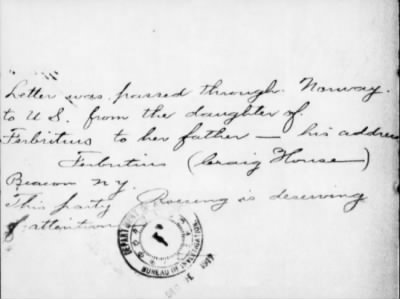 Letter was passed through Norway.
to U.S. from the daughter of
Ferbitius to her father — his address
Ferbitius (Craig House)
Beacon N.Y.
This party is deserving
of attention
BUREAU OF INVESTIGATION